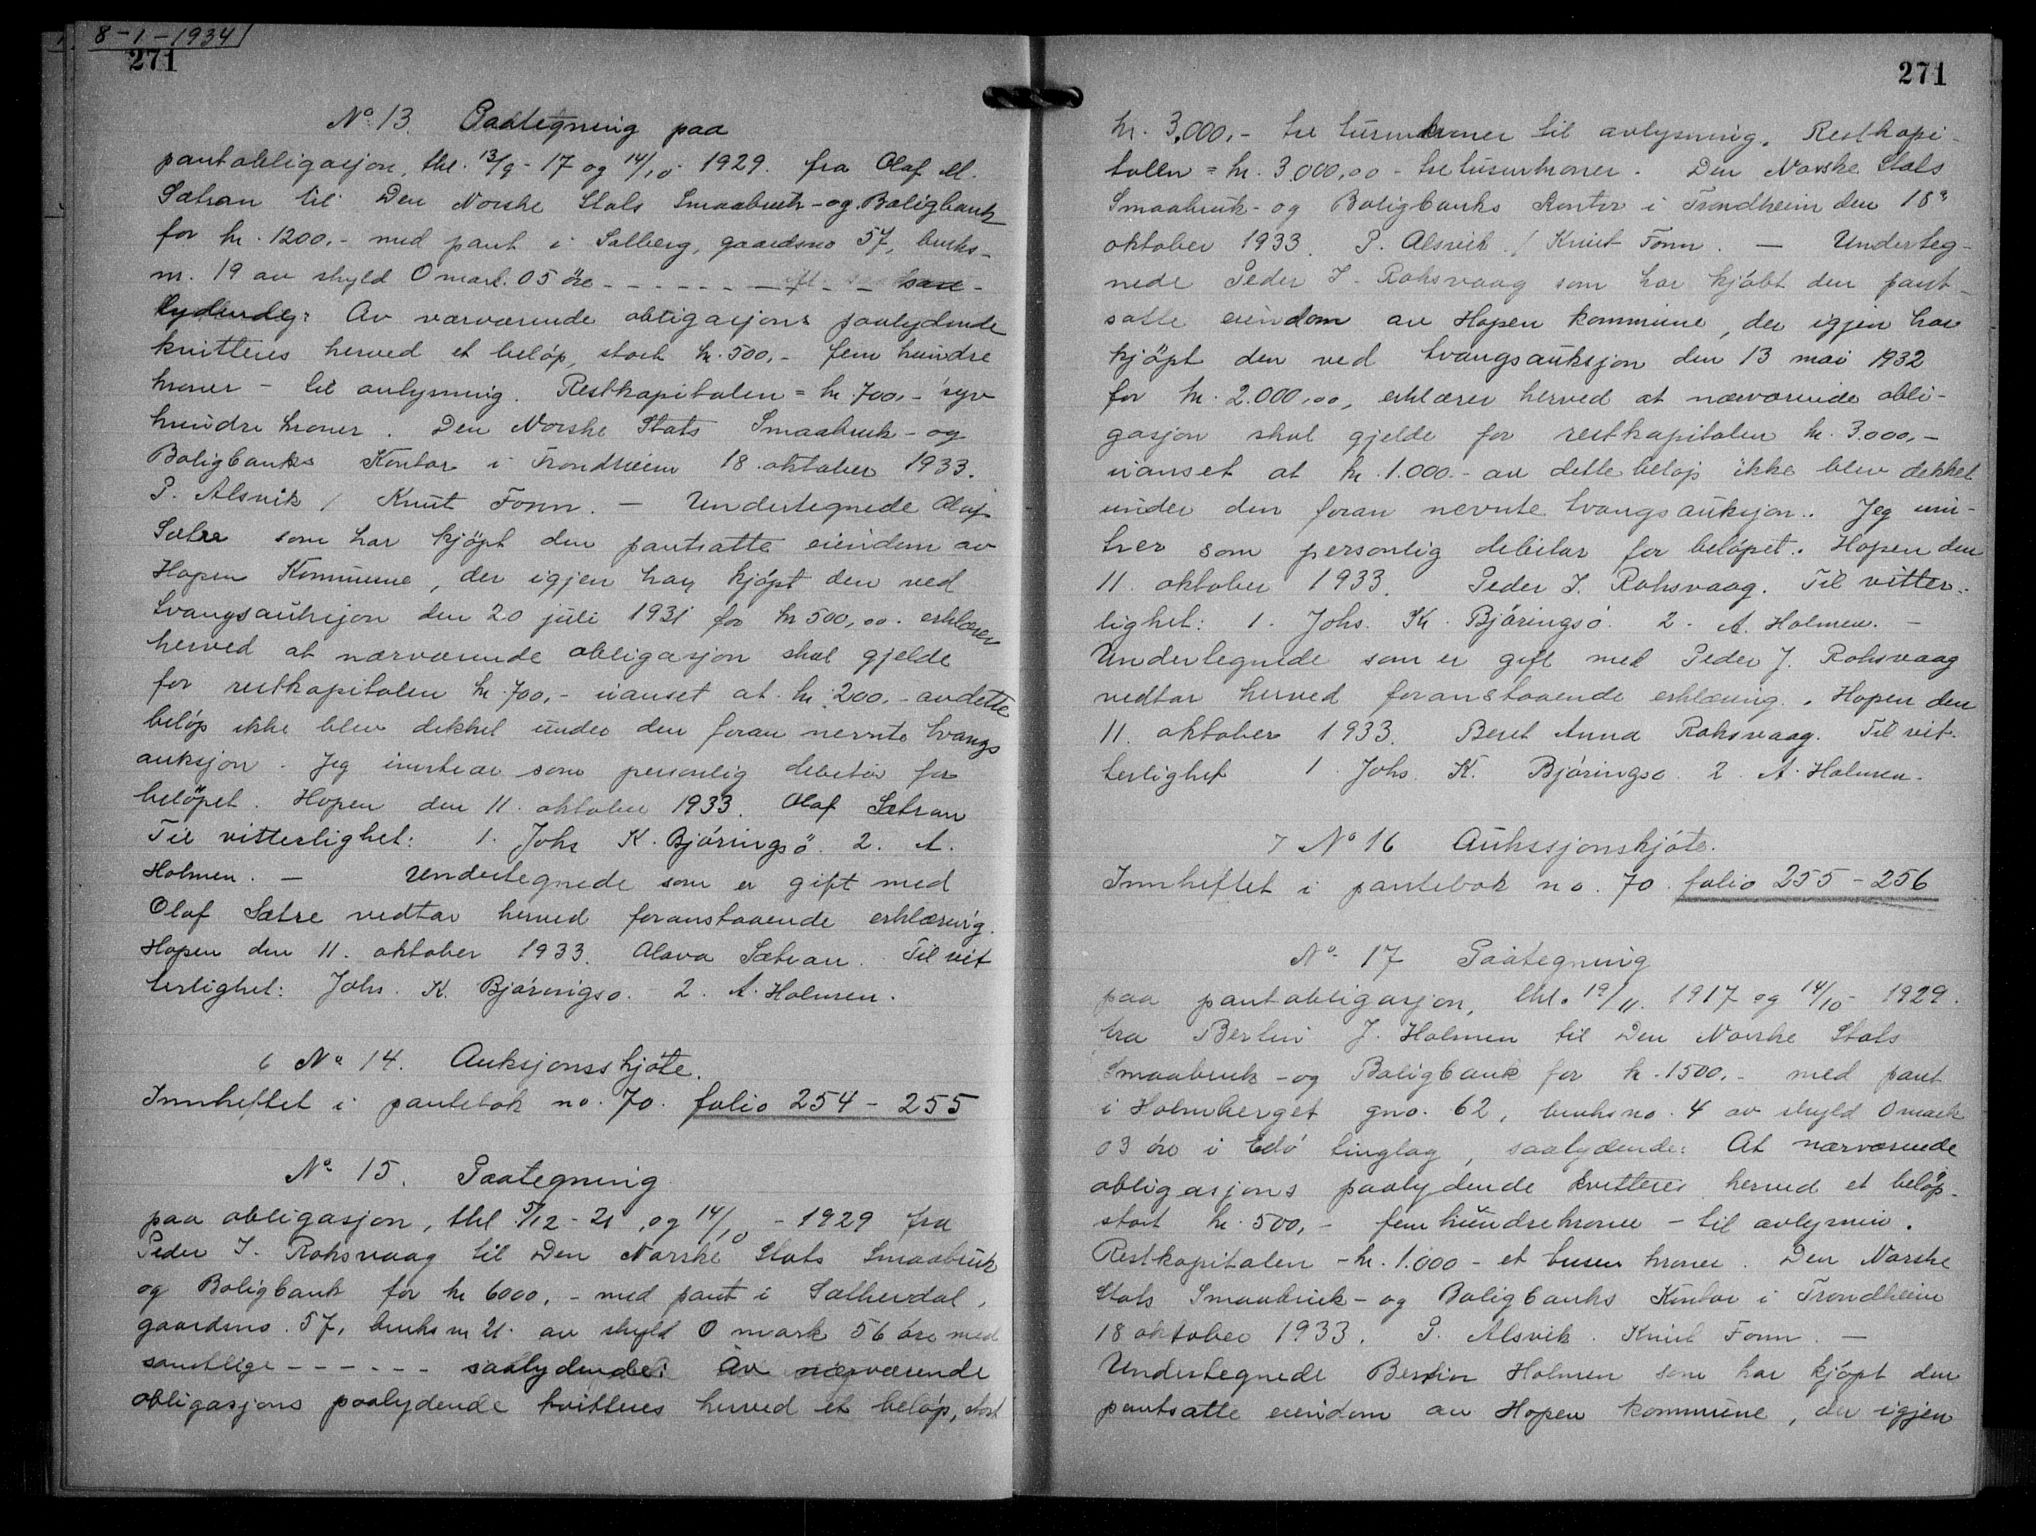 8-1-1934
271
No. 13. Paategning paa
pantobligasjon, thl. 13/9-17 og 14/10 1929. fra Olaf M.
Sætran til Den Norske Stats Smaabruk- og Boligbank
for kr. 1200,- med pant i Solberg, gaardsno 57, bruks-
nr. 19 av skyld 0 mark 05 öre - - - - - -
lydende: Av værværende obligasjons paalydende
kvitteres herved et beløp, stort kr. 500,- fem hundre
kroner - til avlysning. Restkapitalen = kr. 700,- syv
hundre kroner. Den Norske Stats Smaabruk- og
Boligbanks Kontor i Trondheim 18. oktober 1933.
P. Alsvik / Knut Fonn. - Undertegnede Olaf
Sætre som har kjøpt den pantsatte eiendom av
Hopen Kommune, der igjen har kjøpt den ved
tvangsauksjon den 20 juli 1931 for kr 500,00. erklærer
herved at nærværende obligasjon skal gjelde
for restkapitalen kr. 700,- uanset at kr. 200,- av dette
beløp ikke blev dekket under den foran nevnte tvangs
auksjon. Jeg inntrær som personlig debitor for
beløpet. Hopen den 11. oktober 1933. Olaf Sætran
Til vitterlighet: 1. Johs K. Bjøringsö. 2. A.
Holmen. - Undertegnede som er gift med
Olaf Sætre vedtar herved foranstaaende erklæring.
Hopen den 11. oktober 1933. Olava Sætran. Til vit
terlighet: Johs. K. Bjøringsø. 2. A. Holmen.
6 No 14. Auksjonsskjøte.
Innheftet i pantebok no. 70. folio 254 - 255
No. 15. Paategning
paa obligasjon, thl 5/12-21, og 14/10 - 1929 fra
Peder J. Roksvaag til Den Norske Stats Smaabruk
og Boligbank for kr 6000,- med pant i Sætherdal,
gaardsno. 57, bruksnr 21. av skyld 0 mark 56 öre med
samtlige - - - - - - saalydende: Av nærværende
obligasjons paalydende kvitteres herved et beløp, stort
271
kr. 3.000,- tre tusen kroner til avlysning. Restkapi-
talen = kr. 3.000,00 - tretusenkroner. Den Norske Stats
Smaabruk- og Boligbanks Kontor i Trondheim den 18.
oktober 1933. P. Alsvik / Knut Fonn. - Underteg-
nede Peder J. Roksvaag som har kjøbt den pant-
satte eiendom av Hopen kommune, der igjen har
kjøpt den ved tvangsauksjon den 13 mai 1932
for kr. 2.000,00, erklærer herved at nærværende obli-
gasjon skal gjelde for restkapitalen kr. 3.000,-
uanset at kr. 1.000.- av dette beløp ikke blev dekket
under den foran nevnte tvangsauksjon. Jeg inn-
trer som personlig debitor for beløpet. Hopen den
11. oktober 1933. Peder J. Roksvaag. Til vitter-
lighet: 1. Johs. K. Bjøringsø. 2. A. Holmen. -
Undertegnede som er gift med Peder J. Roksvaag
vedtar herved foranstaaende erklæring. Hopen den
11. oktober 1933. Beret Anna Roksvaag. Til vit-
terlighet 1. Johs. K. Bjøringsø. 2. A. Holmen.
7 No 16 Aukssjonskjøte.
Innheftet i pantebok no. 70. folio 255 - 256
No. 17 Paategning
paa pantobligasjon, thl. 19/11. 1917 og 14/10 - 1929.
fra Berlin J. Holmen til Den Norske Stats
Smaabruk- og Boligbank for kr. 1500,- med pant
i Holmberget gno. 62, bruksno. 4 av skyld 0 mark
03 öre i Edö tinglag, saalydende: At nærværende
obligasjons paalydende kvitteres herved et beløp.
stort kr. 500,- femhundrekroner - til avlysnin.
Restkapitalen - kr. 1.000 - et tusen kroner. Den Norske
Stats Smaabruk- og Boligbanks Kontor i Trondheim
18 oktober 1933. P. Alsvik. Knut Fonn. -
Undertegnede Berlin Holmen som har kjøpt den
pantsatte eiendom av Hopen kommune, der igjen